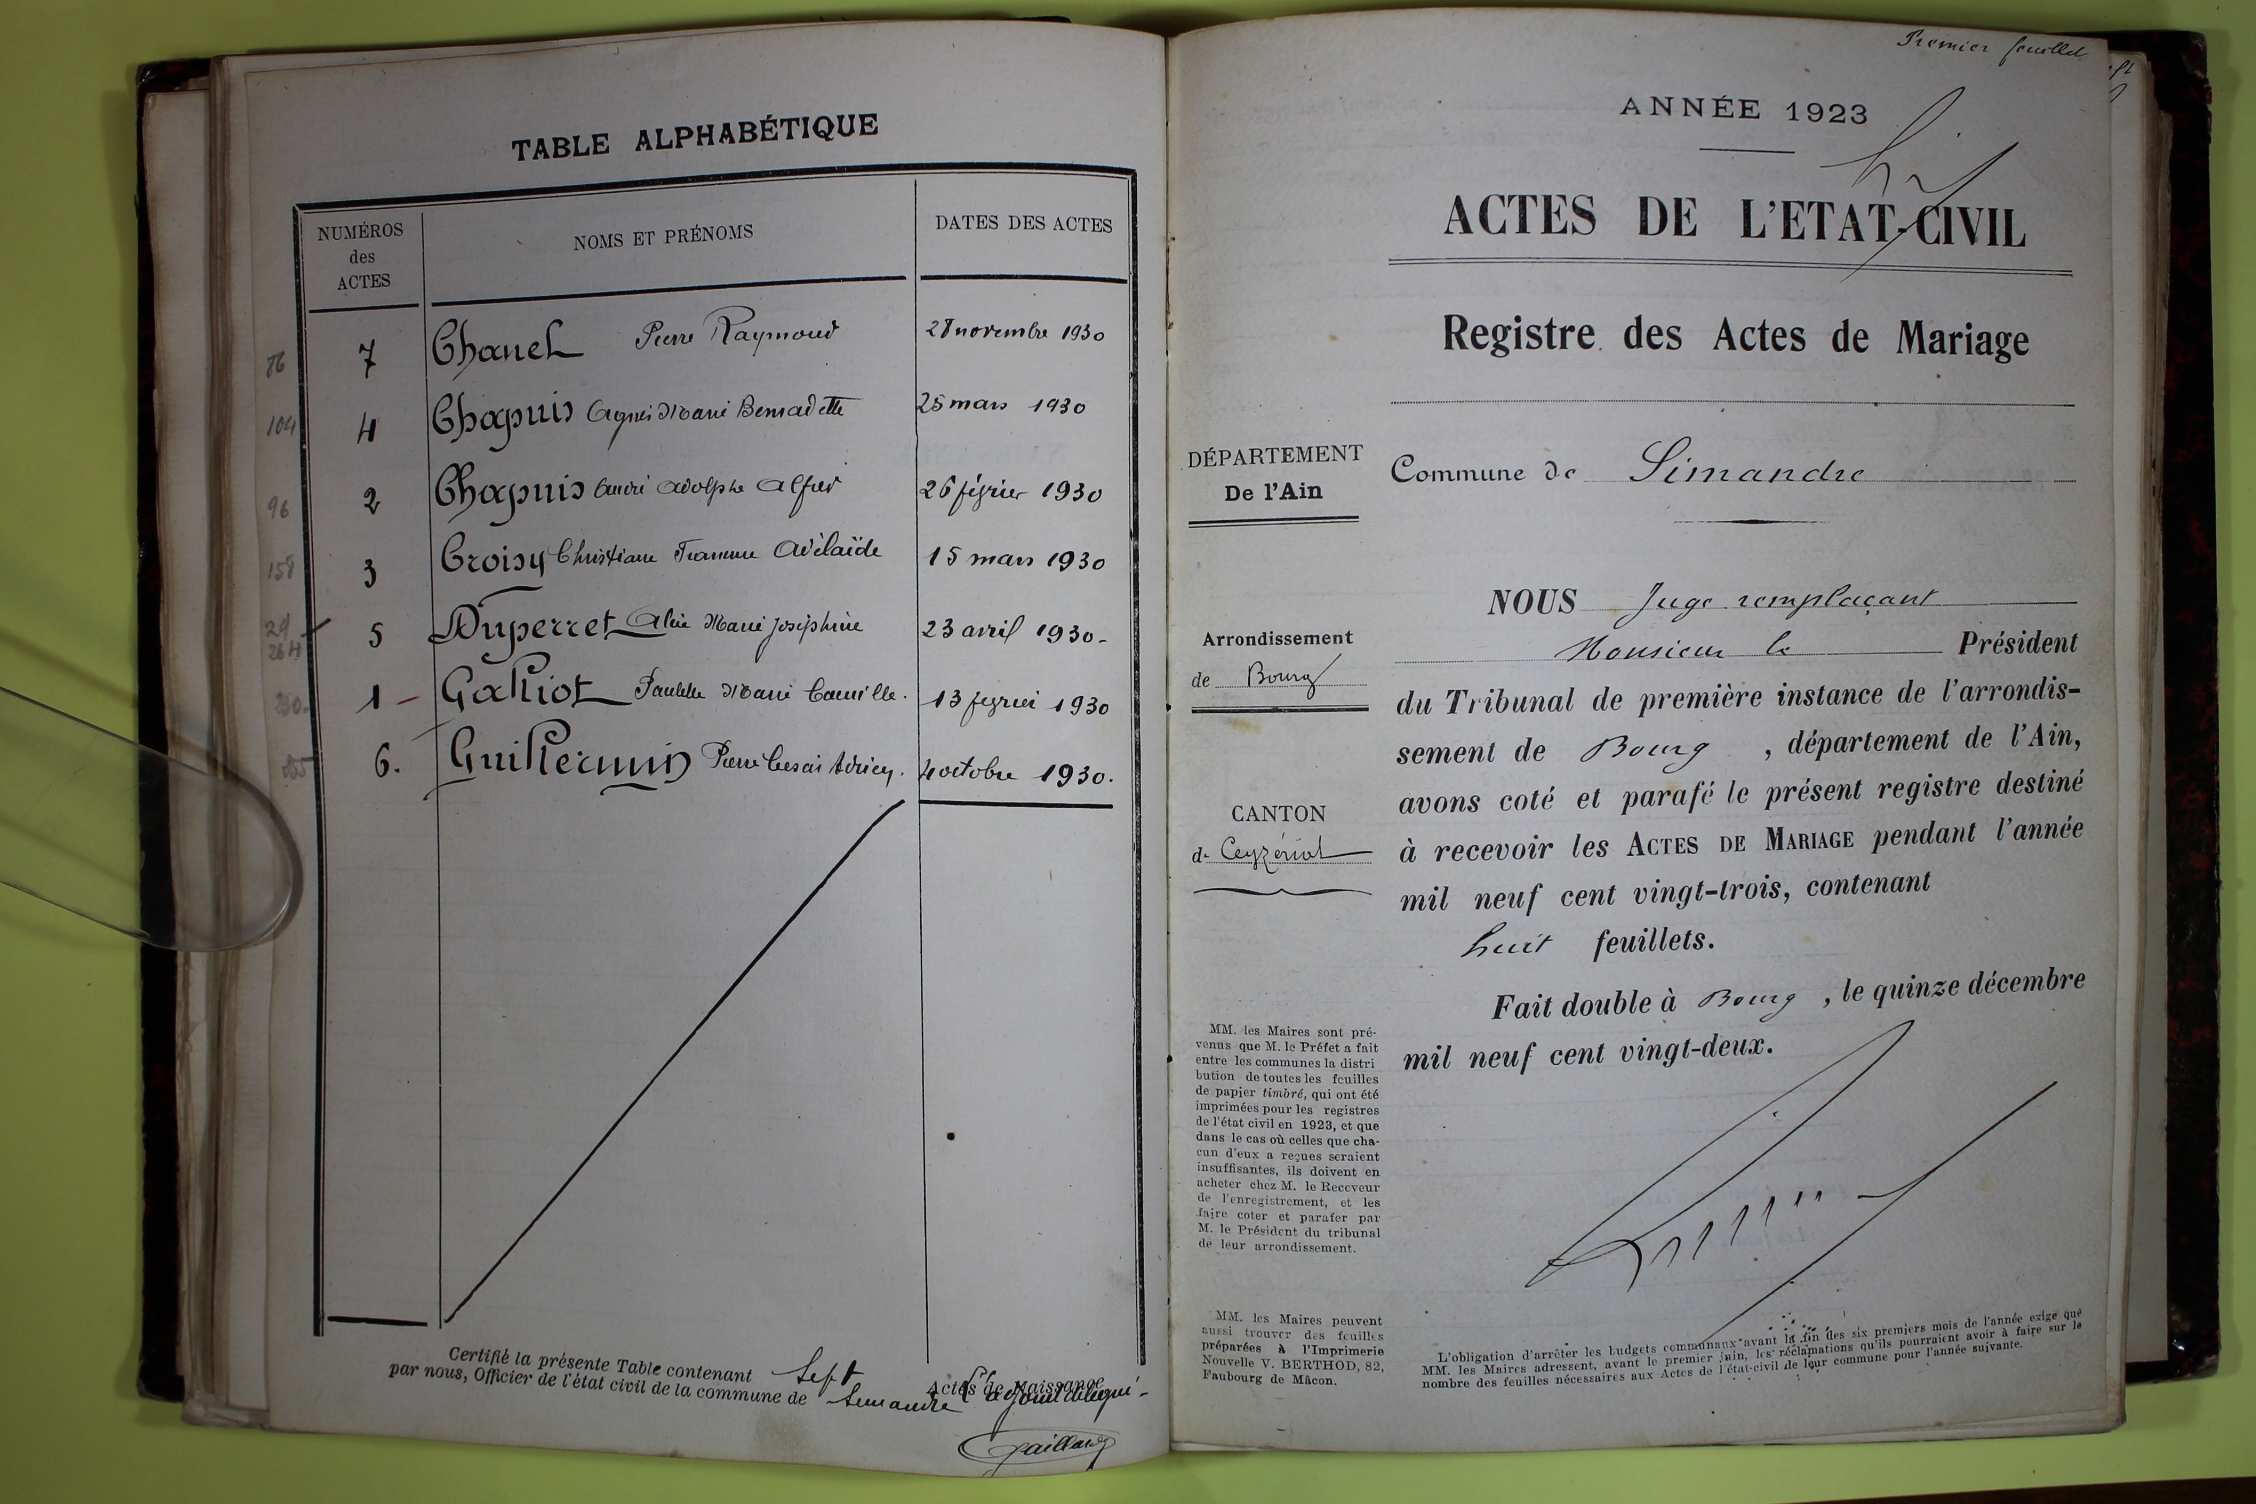 TABLE ALPHABÉTIQUE
NUMÉROS des ACTES
NOMS ET PRÉNOMS
DATES DES ACTES
76 7 Chanel Pierre Raymond 28 novembre 1930
104 4 Chapuis Agnès Marie Bernadette 25 mars 1930
96 2 Chapuis André Adolphe Alfred 26 février 1930
158 3 Croisy Christiane Adélaïde 15 mars 1930
264 5 Duperret Marie Joséphine 23 avril 1930-
1 - Galliot Paulette Marie Camille. 13 février 1930
6. Guillermin Pierre 4 octobre 1930.
Certifié la présente Table contenant Sept Actes de Naissance
par nous, Officier de l'état civil de la commune de Simandre L'adjoint délégué -
Gaillard
Premier feuillet
ANNÉE 1923
ACTES DE L'ETAT-CIVIL
Registre des Actes de Mariage
DÉPARTEMENT
De l'Ain
Commune de Simandre
Arrondissement
de Bourg
CANTON
de Ceyzériat
NOUS Juge remplaçant
Monsieur le Président
du Tribunal de première instance de l'arrondis-
sement de Bourg , département de l'Ain,
avons coté et parafé le présent registre destiné
à recevoir les ACTES DE MARIAGE pendant l'année
mil neuf cent vingt-trois, contenant
huit feuillets.
Fait double à Bourg , le quinze décembre
mil neuf cent vingt-deux.
MM. les Maires sont pré-
venus que M. le Préfet a fait
entre les communes la distri
bution de toutes les feuilles
de papier timbré, qui ont été
imprimées pour les registres
de l'état civil en 1923, et que
dans le cas où celles que cha-
cun d'eux a reçues seraient
insuffisantes, ils doivent en
acheter chez M. le Receveur
de l'enregistrement, et les
faire coter et parafer par
M. le Président du tribunal
de leur arrondissement.
MM. les Maires peuvent
aussi trouver des feuilles
préparées à l'Imprimerie
Nouvelle V. BERTHOD, 82,
Faubourg de Mâcon.
L'obligation d'arrêter les budgets communaux avant la fin des six premiers mois de l'année exige que
MM. les Maires adressent, avant le premier juin, les réclamations qu'ils pourraient avoir à faire sur le
nombre des feuilles nécessaires aux Actes de l'état-civil de leur commune pour l'année suivante.